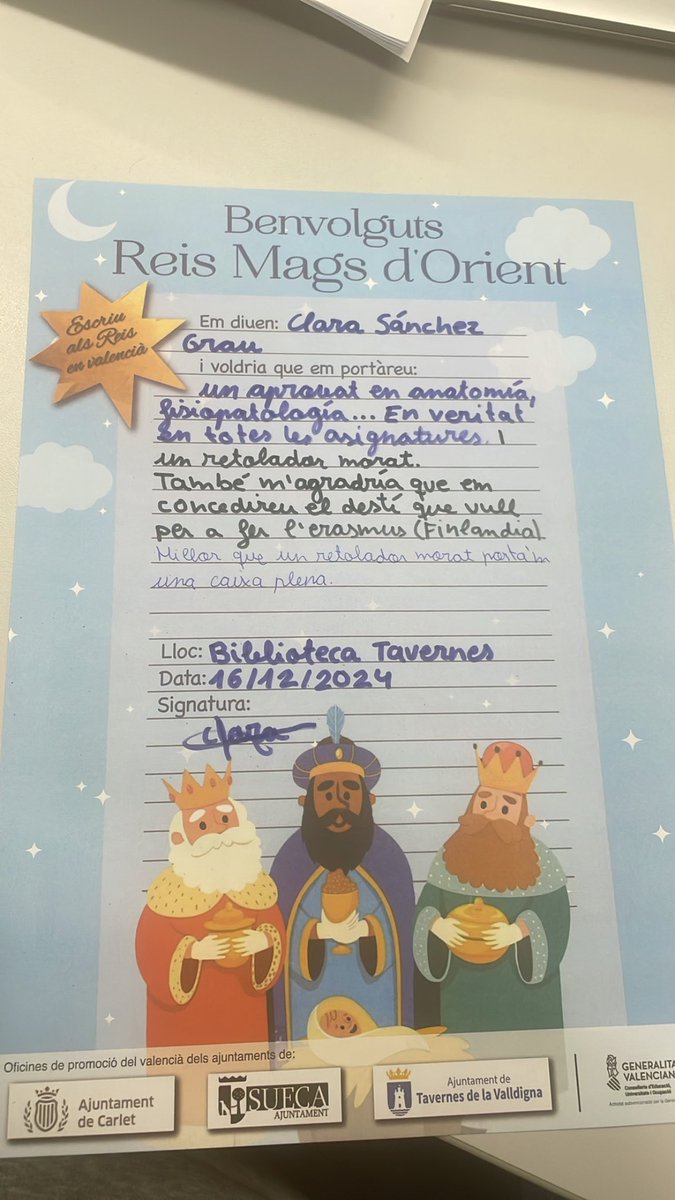 Benvolguts
Reis Mags d'Orient
Escriu
als Reis
en valencià
Em diuen: Clara Sánchez
Grau
i voldria que em portàreu:
un aprovat en anatomía,
fisiopatología... En veritat
en totes les asignatures. I
un retolador morat.
També m'agradría que em
concedireu el destí que vull
per a fer l'erasmus (Finlandia)
Millor que un retolador morat porta'm
una caixa plena.
Lloc: Biblioteca Tavernes
Data: 16/12/2024
Signatura:
Clara
Oficines de promoció del valencià dels ajuntaments de:
Ajuntament
de Carlet
SUECA
AJUNTAMENT
Ajuntament de
Tavernes de la Valldigna
GENERALITA
VALENCIAN
Conselleria d'Educació,
Universitats i Ocupació